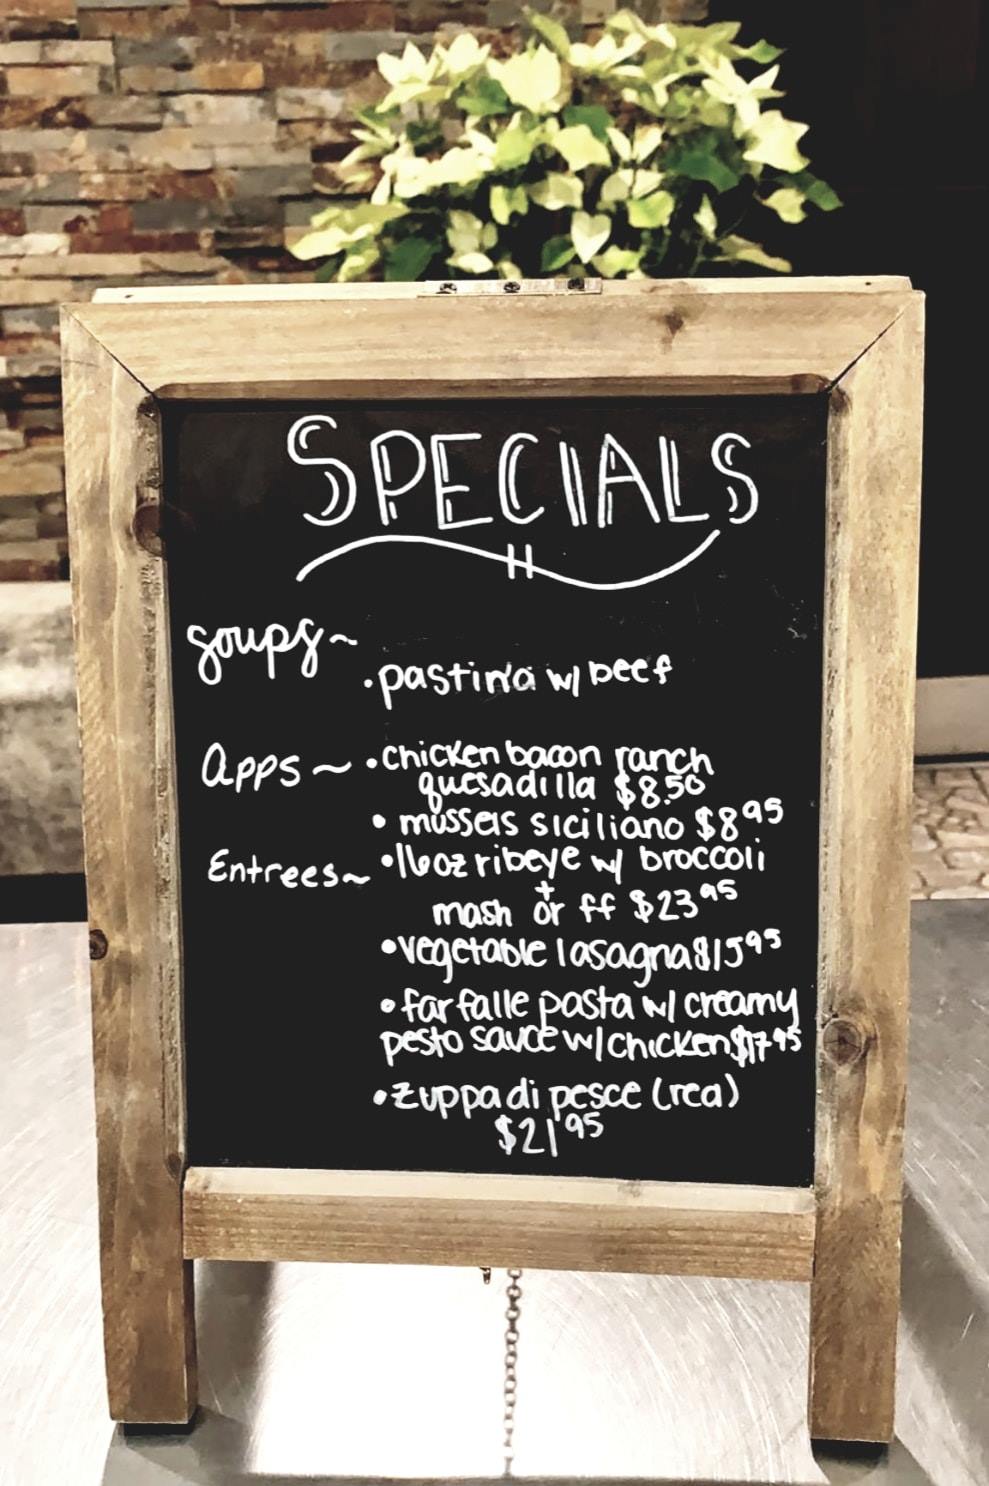 SPECIALS
soups~
• pastina w/ beef
Apps~ • chicken bacon ranch
quesadilla $8.50
• mussels siciliano $8.95
Entrees~ • 16oz ribeye w/ broccoli
+
mash or ff $23.95
• vegetable lasagna $15.95
• farfalle pasta w/ creamy
pesto sauce w/ chicken $17.95
• zuppa di pesce (red)
$21.95